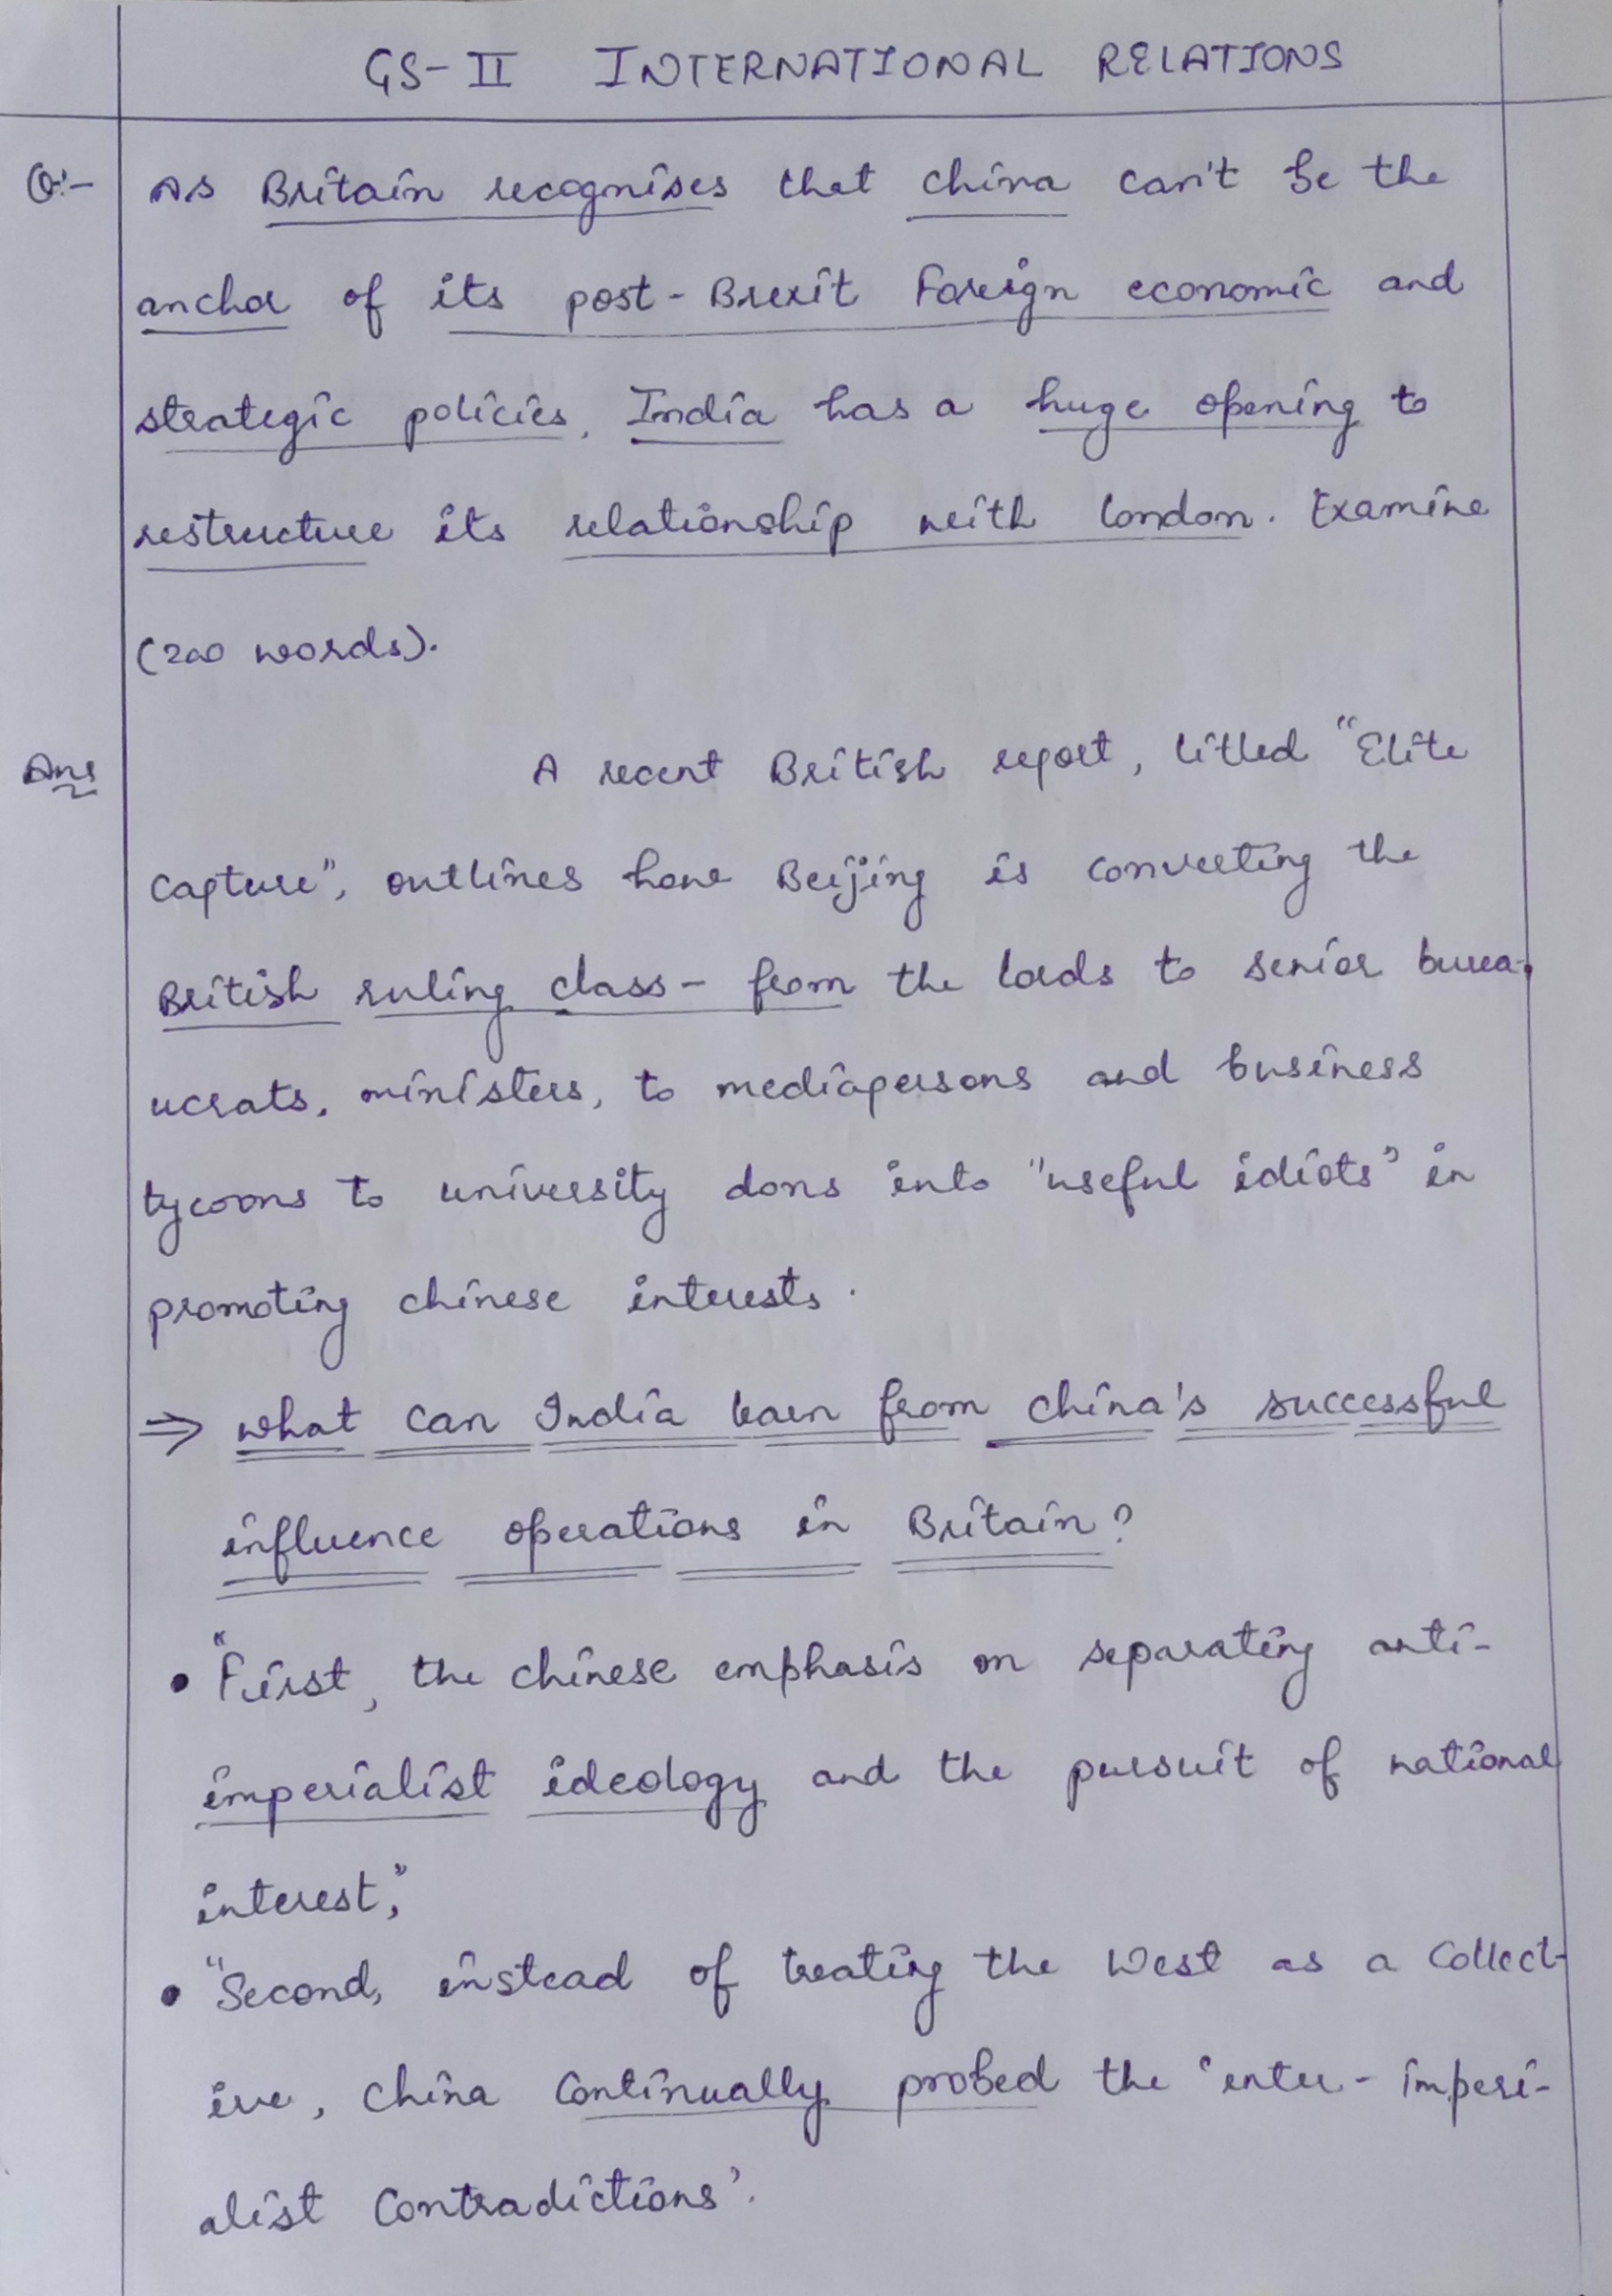 GS-II INTERNATIONAL RELATIONS
Q:- As Britain recognises that china can't be the
anchor of its post-Brexit Foreign economic and
strategic policies, India has a huge opening to
restructure its relationship with London. Examine
(200 words).
Ans A recent British report, titled "Elite
Capture", outlines how Beijing is converting the
British ruling class- from the lords to senior burea-
ucrats, ministers, to mediapersons and business
tycoons to university dons into "useful idiots" in
promoting chinese interests.
⇒ what can India learn from china's successful
influence operations in Britain?
• "First, the chinese emphasis on separating anti-
imperialist ideology and the pursuit of national
interest,"
• "Second, instead of treating the West as a Collect-
ive, china continually probed the 'inter-imperi-
alist Contradictions'.